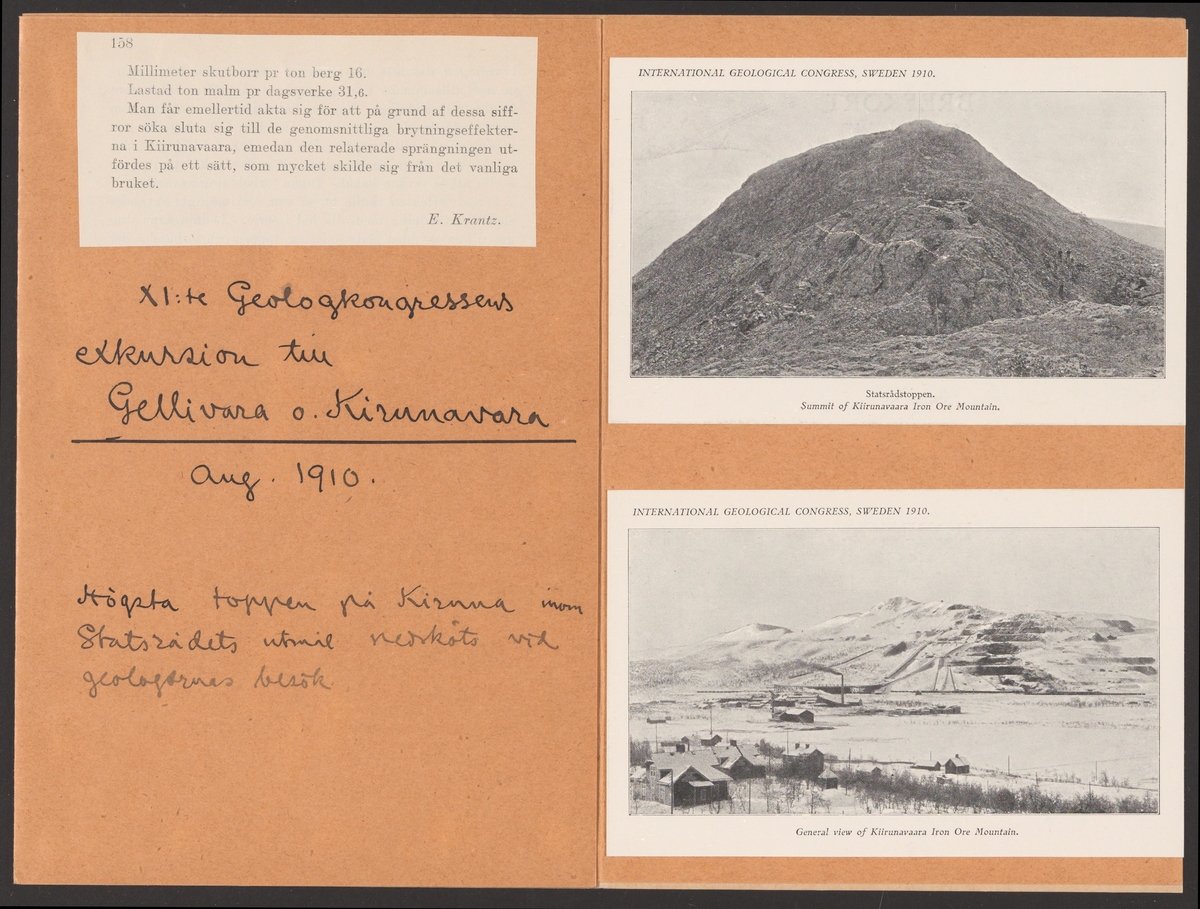 158
Millimeter skutborr pr ton berg 16.
Lastad ton malm pr dagsverke 31,6.
Man får emellertid akta sig för att på grund af dessa siff-
ror söka sluta sig till de genomsnittliga brytningseffekter-
na i Kiirunavaara, emedan den relaterade sprängningen ut-
fördes på ett sätt, som mycket skilde sig från det vanliga
bruket.
E. Krantz.
XI:te Geologkongressens
exkursion till
Gellivara o. Kirunavara
Aug. 1910.
Högsta toppen på Kiruna inom
Statsrådets utmål nedsköts vid
geologernas besök
INTERNATIONAL GEOLOGICAL CONGRESS, SWEDEN 1910.
Statsrådstoppen.
Summit of Kiirunavaara Iron Ore Mountain.
INTERNATIONAL GEOLOGICAL CONGRESS, SWEDEN 1910.
General view of Kiirunavaara Iron Ore Mountain.